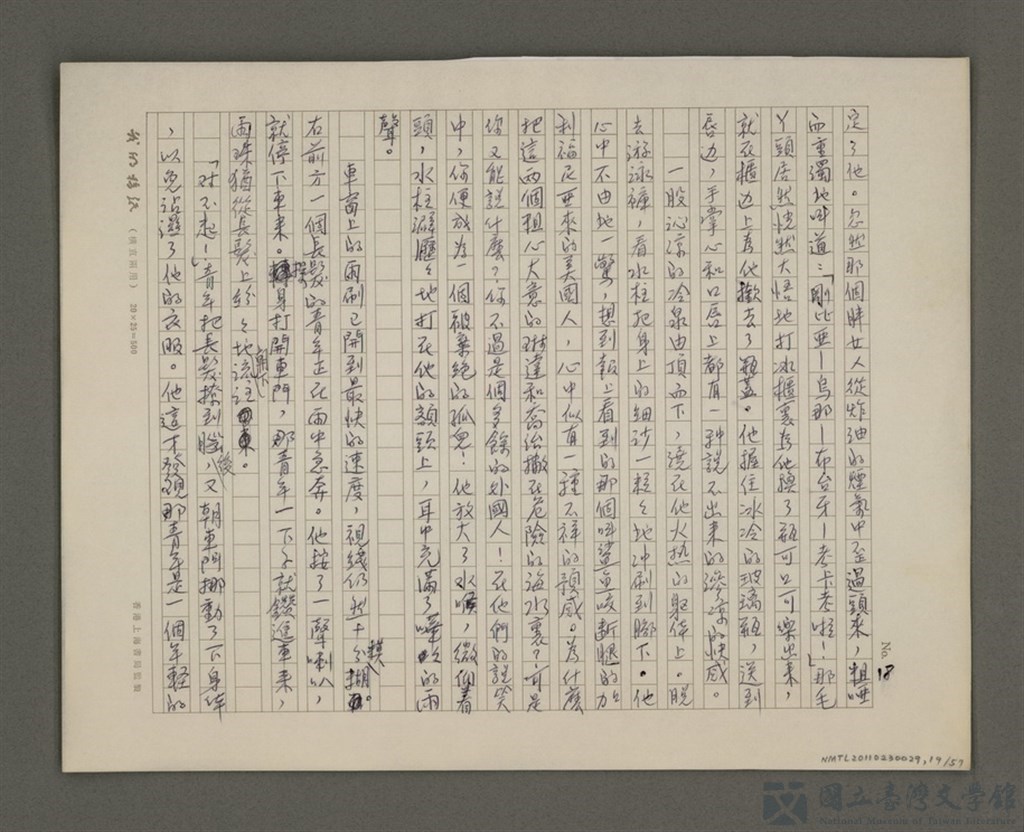 No 18
定了他。忽然那個胖女人從炸油的煙氣中歪過頭來,粗啞
而重濁地叫道:「剛比亞—烏那—布台牙—考卡考啦!」那毛
丫頭居然恍然大悟地打冰櫃裏為他換了瓶可口可樂出來,
就在櫃边上為他撳去了瓶蓋。他握住冰冷的玻璃瓶,送到
唇边,手掌心和口唇上都有一种說不出来的滲凉的快感。
一股沁凉的冷泉由頂而下,澆在他火熱的身体上。脫
去游泳褲,看水柱把身上的細沙一粒々地冲刷到腳下。他
心中不由地一驚,想到報上看到的那個叫鯊魚咬斷腿的加
利福尼亞來的美國人,心中似有一種不祥的預感。為什麼
把這兩個粗心大意的琳達和喬治撇在危險的海水裏?可是
你又能說什麼?何不過是個多餘的外國人!在他們的談笑
中,何便成為一個被棄絕的孤兒!他放大了水喉,微仰着
頭,水柱潺々地打在他的額頭上,耳中充滿了嘩啦的雨
聲。
車窗上的雨刷已開到最快的速度,視綫仍然十分模糊。
右前方一個長髮的青年正在雨中急奔。他按了一聲喇叭,
就停下車来。探身打開車門,那青年一下子就鑽進車来,
雨珠猶從長髮上紛々地流注下來。
「对不起!」青年把長髮撩到腦後,又朝車門挪動了下身体
,以免沾溼了他的衣服。他這才發現那青年是一個年輕的
我的稿紙 (橫直兩用) 20×25=500
香港上海書局監製
NMTL20110230029,19/57
國立臺灣文學館
National Museum of Taiwan Literature